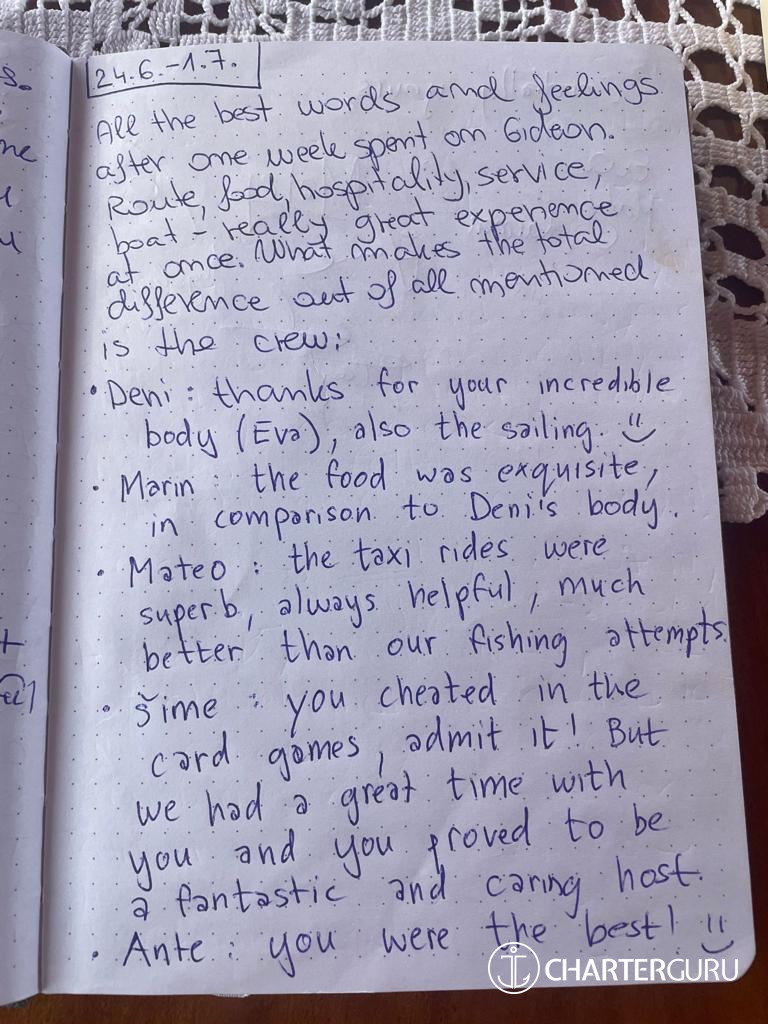 24.6.-1.7.
All the best words and feelings
after one week spent on Gideon.
Route, food, hospitality, service,
boat - really great experience
at once. What makes the total
difference out of all mentioned
is the crew:
• Deni: thanks for your incredible
body (Eva), also the sailing. :)
• Marin: the food was exquisite,
in comparison to Deni's body.
• Mateo: the taxi rides were
superb, always helpful, much
better than our fishing attempts.
• Šime: you cheated in the
card games, admit it! But
we had a great time with
you and you proved to be
a fantastic and caring host.
• Ante: you were the best! :)
CHARTERGURU